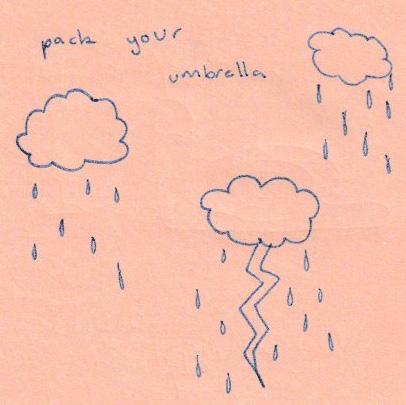 pack your
umbrella